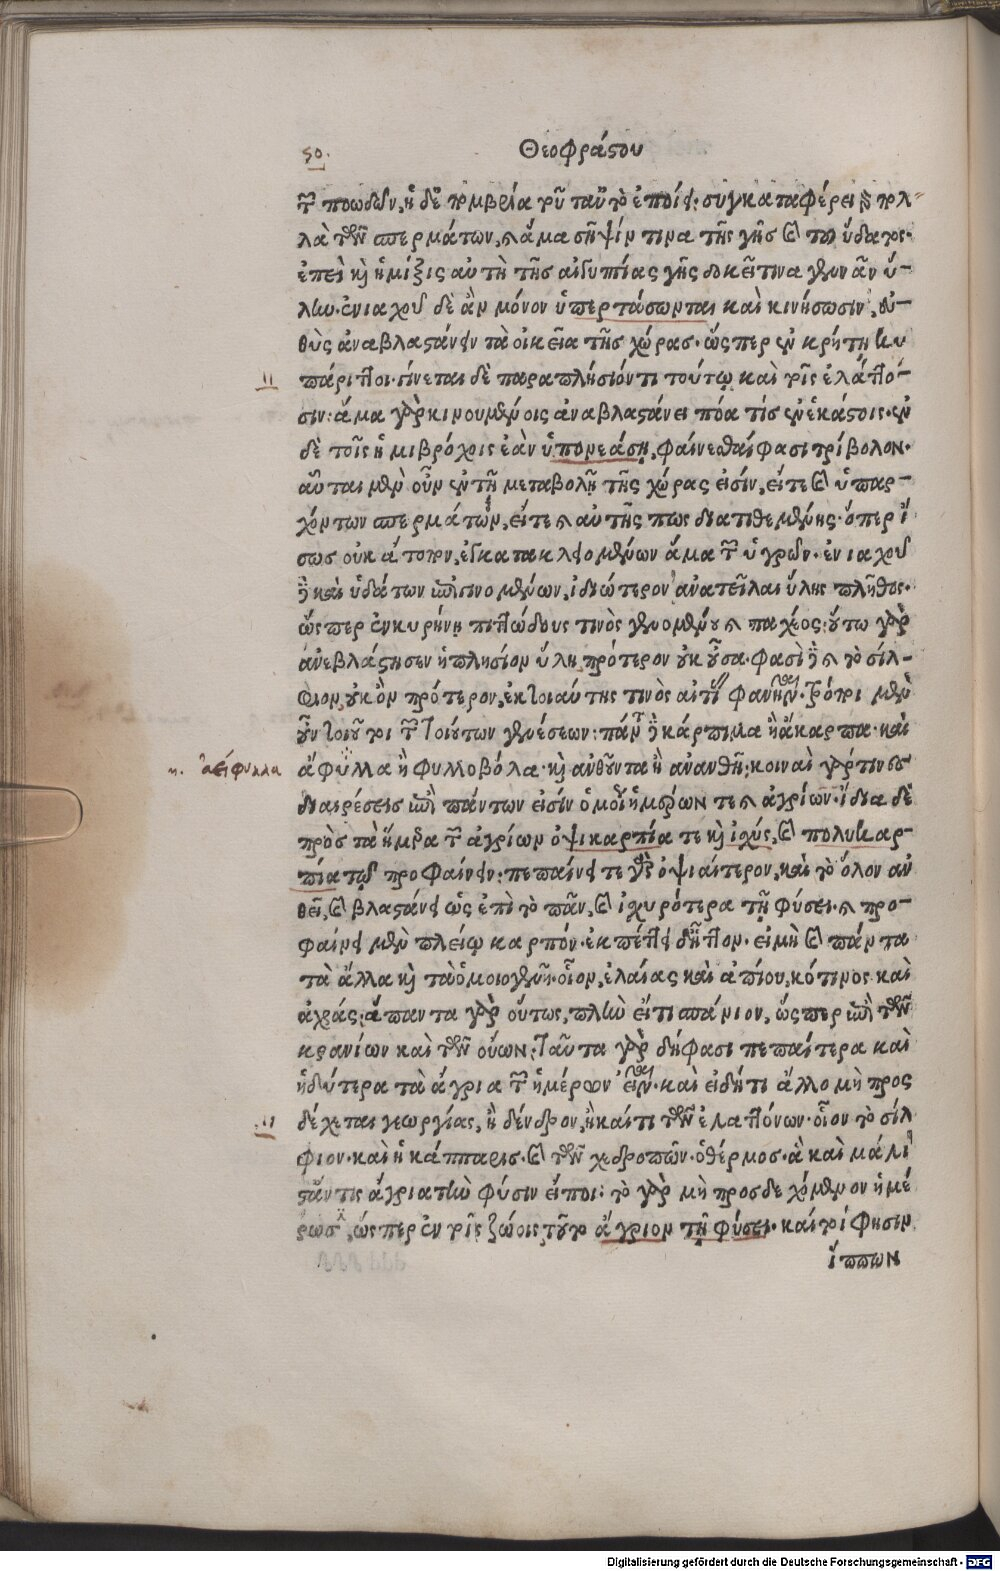 50.
Θεοφράστου
τῶν ποωδῶν, ἡ δὲ ἐπομβρία τοῦ ταὐτὸ ἐποίει· συγκαταφέρει γὰρ πολ-
λὰ τῶν σπερμάτων, καὶ ἅμα σῆψίν τινα τῆς γῆς καὶ τοῦ ὕδατος.
ἐπεὶ καὶ ἡ μίξις αὐτὴ τῆς αἰγυπτίας γῆς δοκεῖ τινα γεννᾶν ὕ-
λην. ἐνιαχοῦ δὲ ἂν μόνον ὑπερτάσωνται καὶ κινήσωσιν, εὐ-
θὺς ἀναβλαστάνειν τὰ οἰκεῖα τῆς χώρας. ὥσπερ ἐν κρήτῃ κυ
πάριττοι. γίνεται δὲ παραπλήσιόν τι τούτῳ καὶ τοῖς ἐλάττο-
σιν: ἅμα γὰρ κινουμένοις ἀναβλαστάνει πόα τίς ἐν ἑκάστοις. ἐν
δὲ τοῖς ἡμιβρόχοις ἐὰν ὑπονεάσῃ, φαίνεσθαί φασι τρίβολον.
αὗται μὲν οὖν ἐν τῇ μεταβολῇ τῆς χώρας εἰσίν, εἴτε καὶ ὑπαρ-
χόντων σπερμάτων, εἴτε καὶ αὐτῆς πως διατιθεμένης. ὅπερ ἴ
σως οὐκ ἄτοπον, ἐγκατακλειομένων ἅμα τῶν ὑγρῶν. ἐνιαχοῦ
δὲ καὶ ὑδάτων ἐπιγινομένων, ἰδιώτερον ἀνατεῖλαι ὕλης πλῆθος.
ὥσπερ ἐν κυρήνῃ πιττώδους τινὸς γενομένου καὶ παχέος: οὕτω γὰρ
ἀνεβλάστησεν ἡ πλησίον ὕλη πρότερον οὐκ οὖσα. φασὶ δὲ καὶ τὸ σίλ-
φιον, οὐκ ὂν πρότερον, ἐκ τοιαύτης τινὸς αἰτίας φανῆναι. τρόποι μὲν
οὖν τοιοῦτοι τῶν τοιούτων γενέσεων: πάντα δὲ κάρπιμα ἢ ἄκαρπα. καὶ
η. ἀείφυλλα
ἄφυλλα ἢ φυλλοβόλα. καὶ ἀνθοῦντα ἢ ἀνανθῆ: κοιναὶ γάρ τινες
διαιρέσεις ἐπὶ πάντων εἰσὶν ὁμοίως ἡμέρων τε καὶ ἀγρίων. ἴδια δὲ
πρὸς τὰ ἥμερα τῶν ἀγρίων ὀψικαρπία τε καὶ ἰσχύς, καὶ πολυκαρ-
πία τῷ προφαίνειν: πεπαίνει τε γὰρ ὀψιαίτερον, καὶ τὸ ὅλον ἀν
θεῖ, καὶ βλαστάνει ὡς ἐπὶ τὸ πᾶν, καὶ ἰσχυρότερα τῇ φύσει. καὶ προ-
φαίνει μὲν πλείω καρπόν. ἐκπέττει δ' ἧττον. εἰ μὴ καὶ πάντα
τὰ ἄλλα καὶ τὰ ὁμοιογενῆ. οἷον, ἐλαίας καὶ ἀπίου, κότινος καὶ
ἀχράς: ἅπαντα γὰρ οὕτως, πλὴν εἴ τι σπάνιον, ὥσπερ ἐπὶ τῶν
κρανίων καὶ τῶν οὔων: ταῦτα γὰρ δή φασι πεπαίτερα καὶ
ἡδύτερα τὰ ἄγρια τῶν ἡμέρων εἶναι. καὶ εἰ δή τι ἄλλο μὴ προς
δέχεται γεωργίας, ἢ δένδρον, ἢ καί τι τῶν ἐλαττόνων. οἷον τὸ σίλ
φιον. καὶ ἡ κάππαρις. καὶ τῶν χεδροπῶν. ὁ θέρμος. ἃ καὶ μάλι
στ' ἄν τις ἄγρια τὴν φύσιν εἴποι: τὸ γὰρ μὴ προσδεχόμενον ἡμέ
ρωσιν, ὥσπερ ἐν τοῖς ζῴοις, τοῦτο ἄγριον τῇ φύσει. καί τοί φησιν
ἵππων
Digitalisierung gefördert durch die Deutsche Forschungsgemeinschaft - DFG